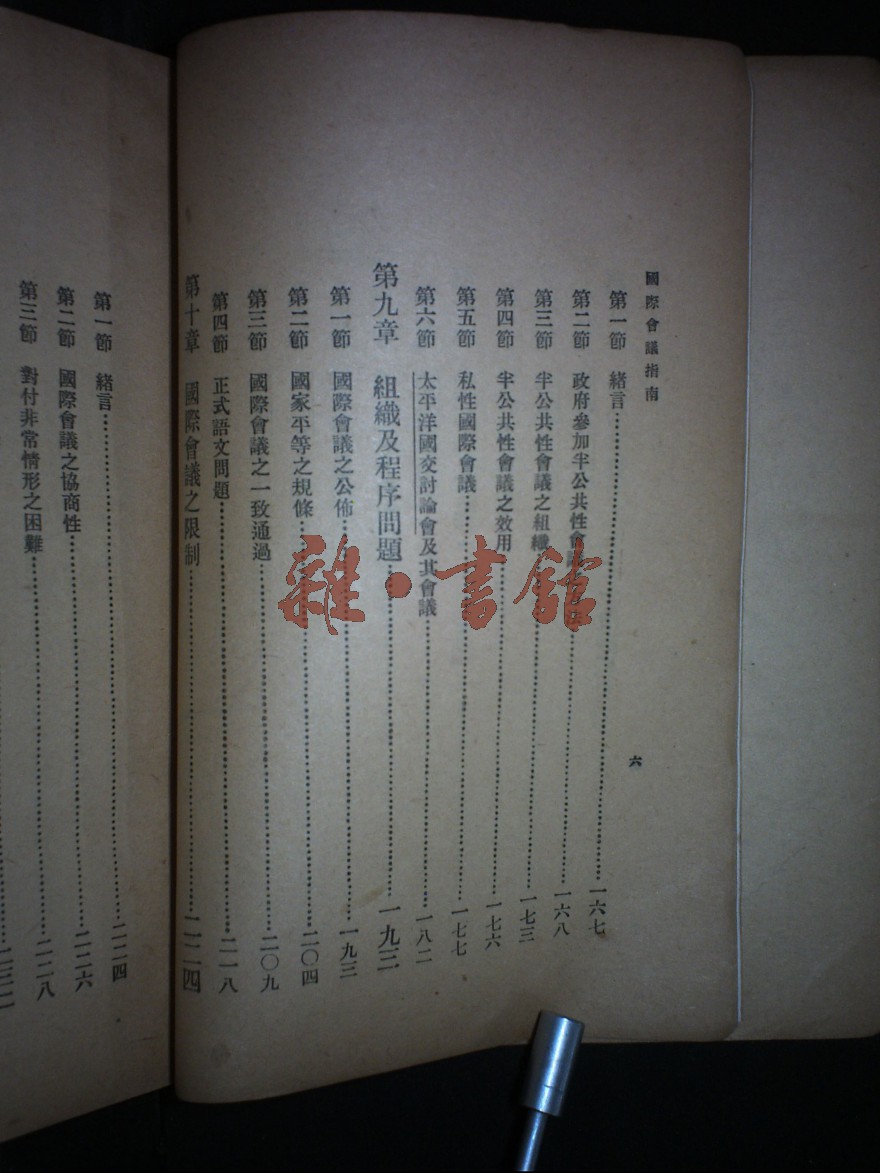 國際會議指南
六
第一節 緒言……一六七
第二節 政府參加半公共性會……一六八
第三節 半公共性會議之組織……一七三
第四節 半公共性會議之效用……一七六
第五節 私性國際會議……一七七
第六節 太平洋國交討論會及其會議……一八二
第九章 組織及程序問題……一九三
第一節 國際會議之公佈……一九三
第二節 國家平等之規條……二〇四
第三節 國際會議之一致通過……二〇九
第四節 正式語文問題……二一八
第十章 國際會議之限制……二二四
第一節 緒言……二二四
第二節 國際會議之協商性……二二六
第三節 對付非常情形之困難……二二八
雜·書館